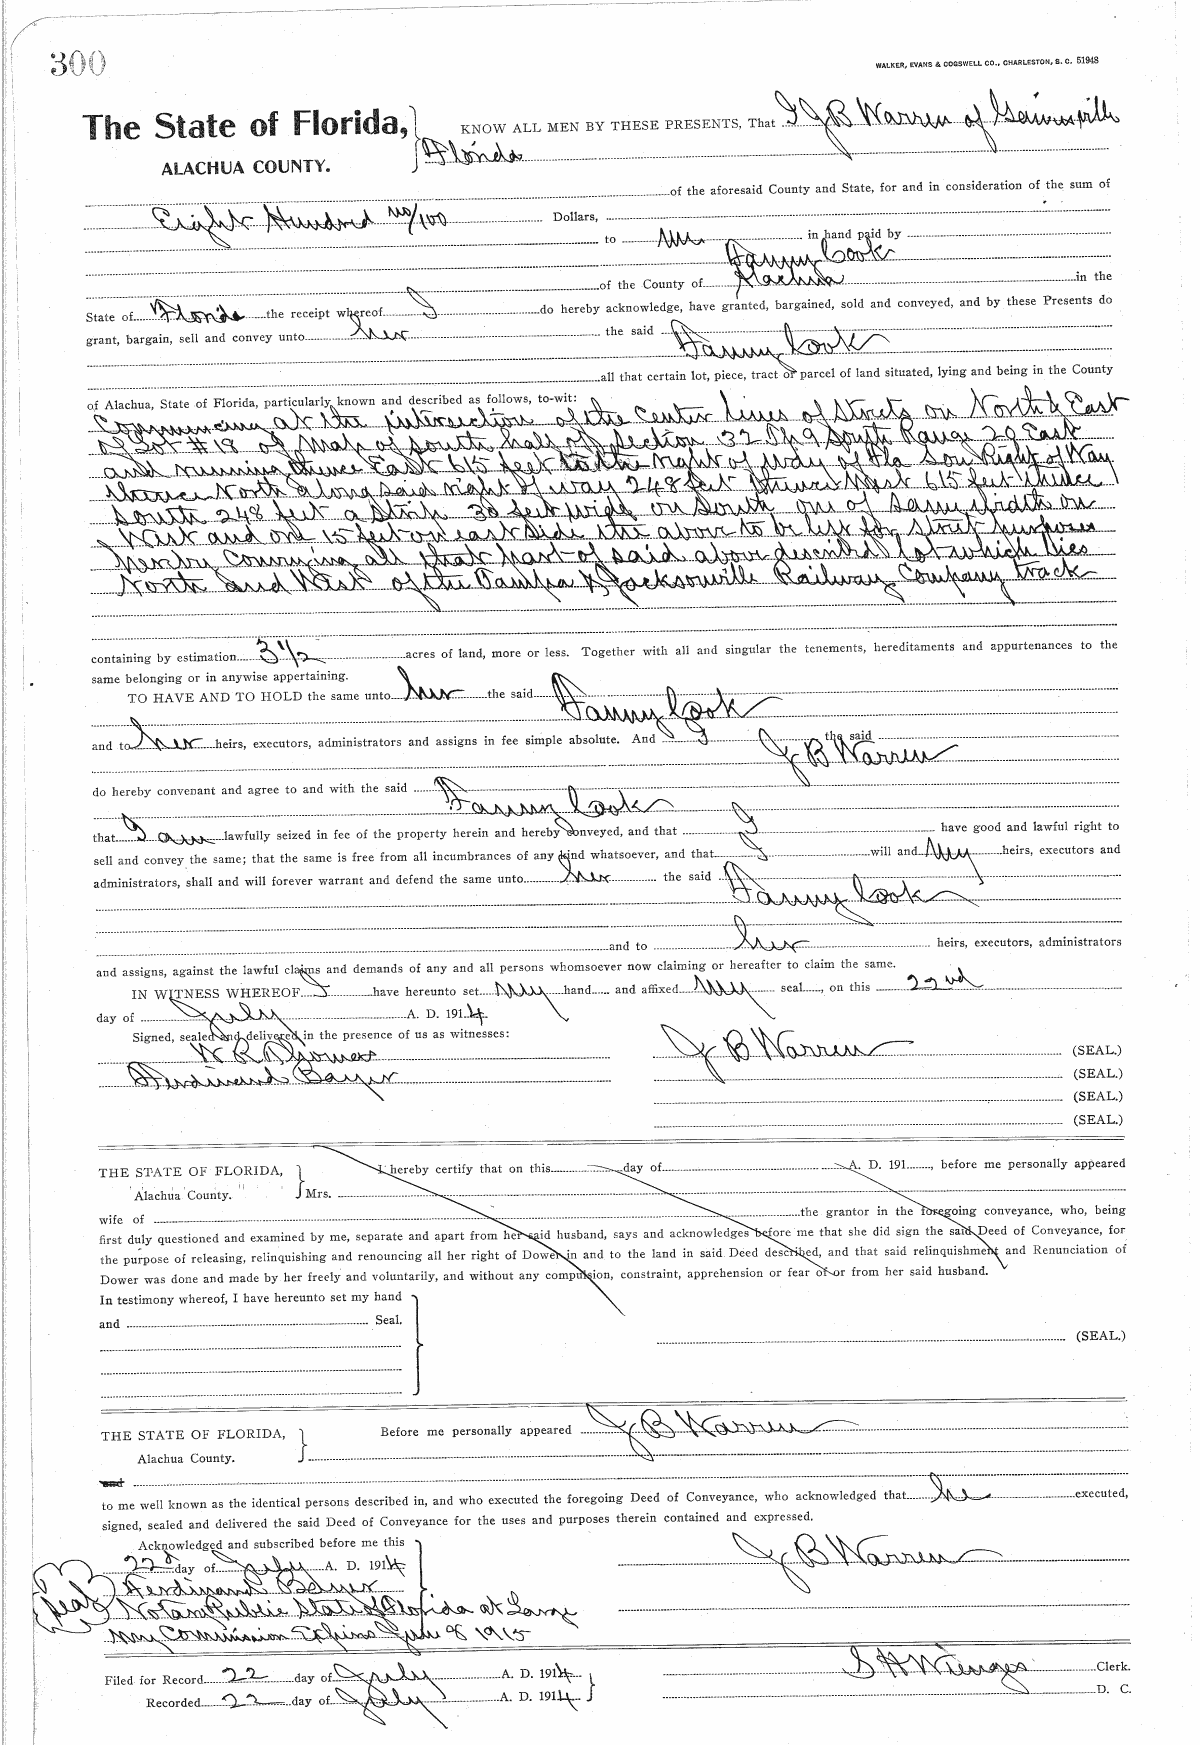 300
WALKER, EVANS & COGSWELL CO., CHARLESTON, S. C. 51948
The State of Florida,
ALACHUA COUNTY.
KNOW ALL MEN BY THESE PRESENTS, That I J B Warren of Gainesville
Florida
of the aforesaid County and State, for and in consideration of the sum of
Eight Hundred no/100 Dollars,
to me in hand paid by
Fanny Cook
of the County of Alachua in the
State of Florida the receipt whereof I do hereby acknowledge, have granted, bargained, sold and conveyed, and by these Presents do
grant, bargain, sell and convey unto her the said
Fanny Cook
all that certain lot, piece, tract or parcel of land situated, lying and being in the County
of Alachua, State of Florida, particularly known and described as follows, to-wit:
Commencing at the intersection of the Center lines of Streets on North & East
of Lot #18 of Map of south half of Section 32 Th 9 South Range 20 East
and running thence East 615 feet to the right of way of Fla Sou Right of Way
thence North along said right of way 248 feet thence West 615 feet thence
South 248 feet a Strip 30 feet wide on South one of same width on
West and one 15 feet on east side the above to be left for street purposes
hereby Conveying all that part of said above described lot which lies
North and West of the Tampa & Jacksonville Railway Company track
containing by estimation 3 1/2 acres of land, more or less. Together with all and singular the tenements, hereditaments and appurtenances to the
same belonging or in anywise appertaining.
TO HAVE AND TO HOLD the same unto her the said
Fanny Cook
and to her heirs, executors, administrators and assigns in fee simple absolute. And I the said
J B Warren
do hereby convenant and agree to and with the said
Fanny Cook
that I am lawfully seized in fee of the property herein and hereby conveyed, and that I have good and lawful right to
sell and convey the same; that the same is free from all incumbrances of any kind whatsoever, and that I will and my heirs, executors and
administrators, shall and will forever warrant and defend the same unto her the said
Fanny Cook
and to her heirs, executors, administrators
and assigns, against the lawful claims and demands of any and all persons whomsoever now claiming or hereafter to claim the same.
IN WITNESS WHEREOF I have hereunto set my hand and affixed my seal, on this 22nd
day of July A. D. 1914.
Signed, sealed and delivered in the presence of us as witnesses:
W R Thomas
J B Warren (SEAL.)
Ferdinand Bayer
(SEAL.)
(SEAL.)
(SEAL.)
THE STATE OF FLORIDA,
Alachua County.
I hereby certify that on this day of A. D. 191, before me personally appeared
Mrs.
wife of the grantor in the foregoing conveyance, who, being
first duly questioned and examined by me, separate and apart from her said husband, says and acknowledges before me that she did sign the said Deed of Conveyance, for
the purpose of releasing, relinquishing and renouncing all her right of Dower in and to the land in said Deed described, and that said relinquishment and Renunciation of
Dower was done and made by her freely and voluntarily, and without any compulsion, constraint, apprehension or fear of or from her said husband.
In testimony whereof, I have hereunto set my hand
and Seal.
(SEAL.)
THE STATE OF FLORIDA,
Alachua County.
Before me personally appeared J B Warren
and
to me well known as the identical persons described in, and who executed the foregoing Deed of Conveyance, who acknowledged that he executed,
signed, sealed and delivered the said Deed of Conveyance for the uses and purposes therein contained and expressed.
Acknowledged and subscribed before me this
22d day of July A. D. 1914
J B Warren
Ferdinand Bayer
Seal
Notary Public State of Florida at Large
My Commission Expires 8 1915
Filed for Record 22 day of July A. D. 1914
S H Wienges Clerk.
Recorded 22 day of July A. D. 1914
D. C.